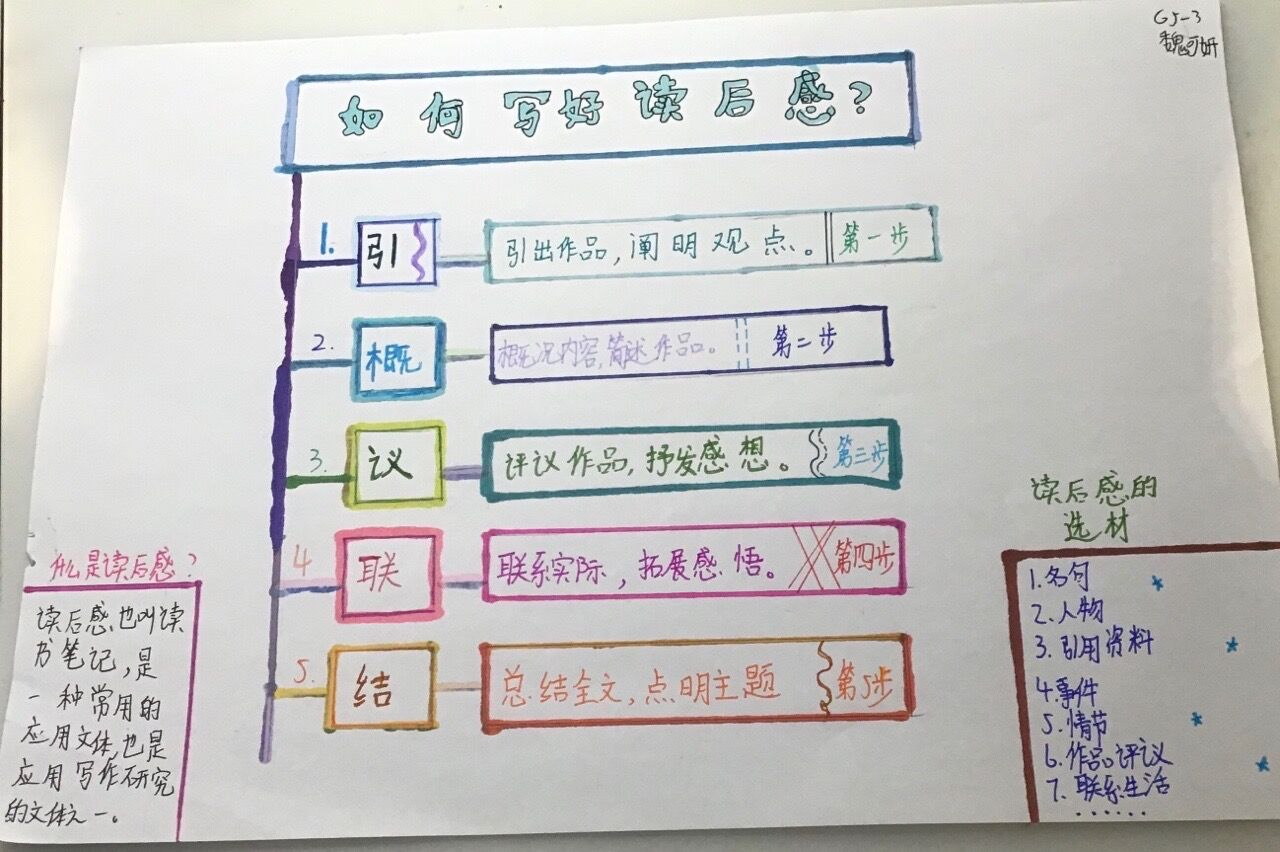 G5-3
魏可妍
如何写好读后感?
1. 引 引出作品,阐明观点。 第一步
2. 概 概况内容,简述作品。 第二步
3. 议 评议作品,抒发感想。 第三步
4 联 联系实际,拓展感悟。 第四步
5. 结 总结全文,点明主题 第5步
什么是读后感?
读后感也叫读
书笔记,是
一种常用的
应用文体,也是
应用写作研究
的文体之一。
读后感的
选材
1.名句
2.人物
3.引用资料
4.事件
5.情节
6.作品评议
7.联系生活
······